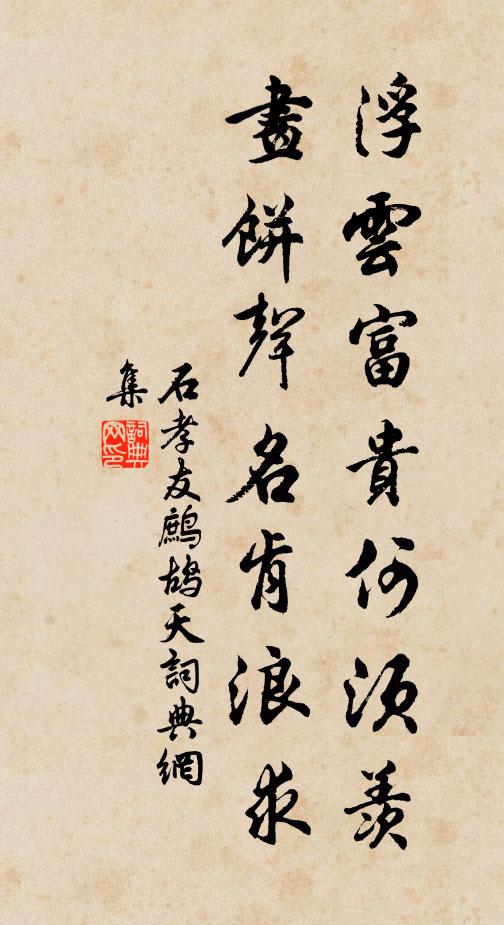 浮雲富貴何須羨
畫餅聲名肯浪求
石孝友鷓鴣天詞典網
集
詞典网印